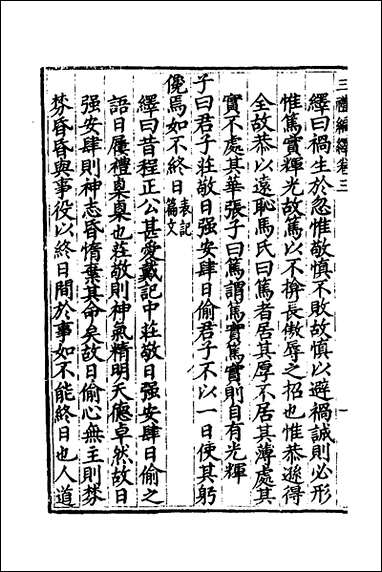 三禮編繹卷三
繹曰禍生於忽惟敬慎不敗故慎以避禍誠則必形
惟篤實輝光故篤以不揜長傲辱之招也惟恭遜得
全故恭以遠恥馬氏曰篤者居其厚不居其薄處其
實不處其華張子曰篤謂篤實篤實則自有光輝
子曰君子莊敬日强安肆日偷君子不以一日使其躬
儳焉如不終日表記篇文
繹曰昔程正公甚愛戴記中莊敬日强安肆日偷之
語曰履禮真臬也莊敬則神氣精明天德卓然故日
强安肆則神志昏惰棄其命矣故日偷心無主則棼
棼昏昏與事役以終日間於事如不能終日也人道